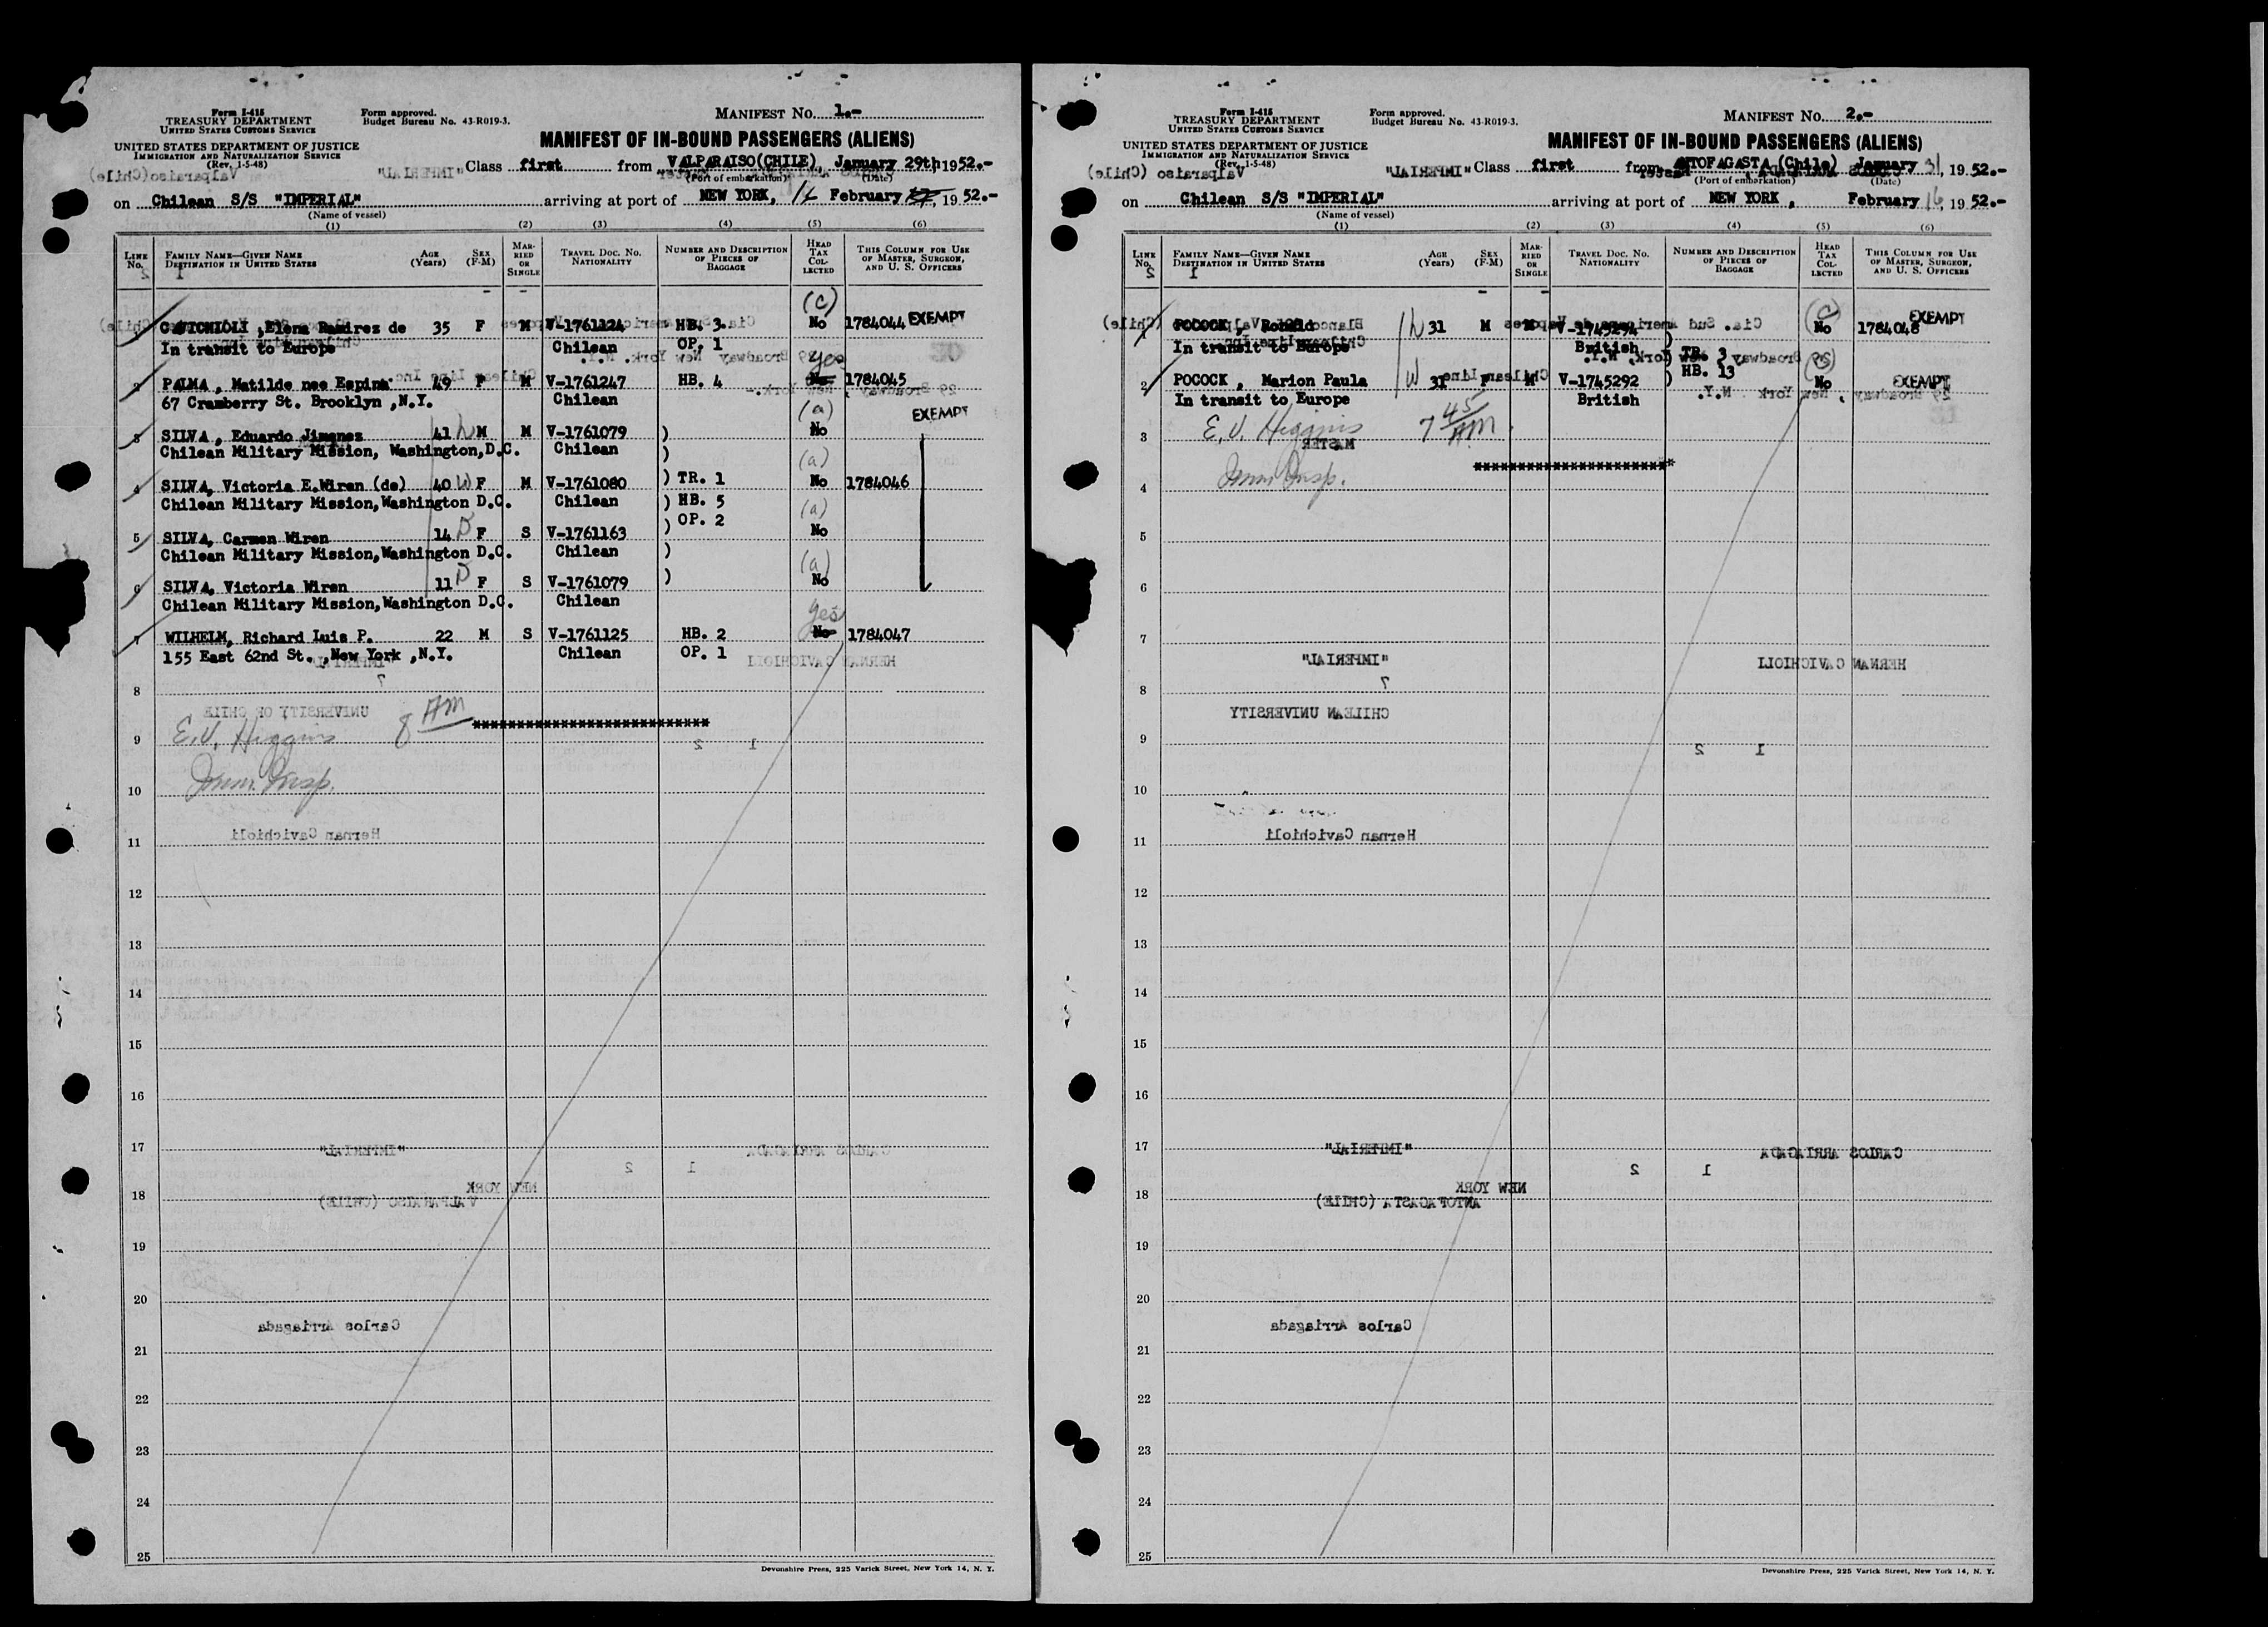 Form I-415
TREASURY DEPARTMENT
UNITED STATES CUSTOMS SERVICE
UNITED STATES DEPARTMENT OF JUSTICE
IMMIGRATION AND NATURALIZATION SERVICE
(Rev. 1-5-48)
Form approved.
Budget Bureau No. 43-R019-3.
MANIFEST No. 1.-
MANIFEST OF IN-BOUND PASSENGERS (ALIENS)
Class first from VALPARAISO(CHILE), January 29th 1952.-
(Port of embarkation) (Date)
on Chilean S/S "IMPERIAL" arriving at port of NEW YORK, 16 February 1952.-
(Name of vessel)
(1) (2) (3) (4) (5) (6)
LINE No. FAMILY NAME—GIVEN NAME DESTINATION IN UNITED STATES AGE (Years) SEX (F-M) MARRIED OR SINGLE TRAVEL DOC. NO. NATIONALITY NUMBER AND DESCRIPTION OF PIECES OF BAGGAGE HEAD TAX COLLECTED THIS COLUMN FOR USE OF MASTER, SURGEON, AND U. S. OFFICERS
(c)
1 CAVICHIOLI, Elena Ramirez de 35 F M V-1761124 HB. 3. No 1784044 EXEMPT
In transit to Europe Chilean OP. 1
yes
2 PALMA, Matilde nee Espina 49 F M V-1761247 HB. 4 No 1784045
67 Cramberry St. Brooklyn ,N.Y. Chilean
(a) EXEMPT
3 SILVA, Eduardo Jimenez 41 h M M V-1761079 ) No
Chilean Military Mission, Washington,D.C. Chilean )
(a)
4 SILVA, Victoria E.Wiren (de) 40 W F M V-1761080 ) TR. 1 No 1784046
Chilean Military Mission,Washington D.C. Chilean ) HB. 5
(a)
) OP. 2
5 SILVA, Carmen Wiren 14 D F S V-1761163 No
Chilean Military Mission,Washington D.C. Chilean )
(a)
6 SILVA, Victoria Wiren 11 D F S V-1761079 ) No
Chilean Military Mission,Washington D.C. Chilean
yes
7 WILHELM, Richard Luis P. 22 M S V-1761125 HB. 2 No 1784047
155 East 62nd St. ,New York ,N.Y. Chilean OP. 1
"IMPERIAL" HERNAN CAVICHIOLI
7
8
UNIVERSITY OF CHILE
E.V. Higgins 8 AM **************************
9
1 2
Imm. Insp.
10
Hernan Cavichioli
11
12
13
14
15
16
17
"IMPERIAL" CARLOS ARRIAGADA
1 2
18
NEW YORK
VALPARAISO (CHILE)
19
20
Carlos Arriagada
21
22
23
24
25
Devonshire Press, 225 Varick Street, New York 14, N. Y.
Form I-415
TREASURY DEPARTMENT
UNITED STATES CUSTOMS SERVICE
UNITED STATES DEPARTMENT OF JUSTICE
IMMIGRATION AND NATURALIZATION SERVICE
(Rev. 1-5-48)
Form approved.
Budget Bureau No. 43-R019-3.
MANIFEST No. 2.-
MANIFEST OF IN-BOUND PASSENGERS (ALIENS)
Class first from ANTOFAGASTA (Chile) January 31, 1952.-
(Port of embarkation) (Date)
on Chilean S/S "IMPERIAL" arriving at port of NEW YORK, February 16, 1952.-
(Name of vessel)
(1) (2) (3) (4) (5) (6)
LINE No. FAMILY NAME—GIVEN NAME DESTINATION IN UNITED STATES AGE (Years) SEX (F-M) MARRIED OR SINGLE TRAVEL DOC. NO. NATIONALITY NUMBER AND DESCRIPTION OF PIECES OF BAGGAGE HEAD TAX COLLECTED THIS COLUMN FOR USE OF MASTER, SURGEON, AND U. S. OFFICERS
(c)
1 POCOCK, Ronald h 31 M M V-1745294 ) No 1784048 EXEMPT
In transit to Europe British TR. 3
HB. 13
2 POCOCK, Marion Paula W 31 F M V-1745292 ) No EXEMPT
In transit to Europe British
E.V. Higgins 7 45 AM
3
MASTER
**********************
Imm. Insp.
4
5
6
7
"IMPERIAL" HERNAN CAVICHIOLI
7
8
CHILEAN UNIVERSITY
9
1 2
10
Hernan Cavichioli
11
12
13
14
15
16
17
"IMPERIAL" CARLOS ARRIAGADA
1 2
18
NEW YORK
ANTOFAGASTA (CHILE)
19
20
Carlos Arriagada
21
22
23
24
25
Devonshire Press, 225 Varick Street, New York 14, N. Y.